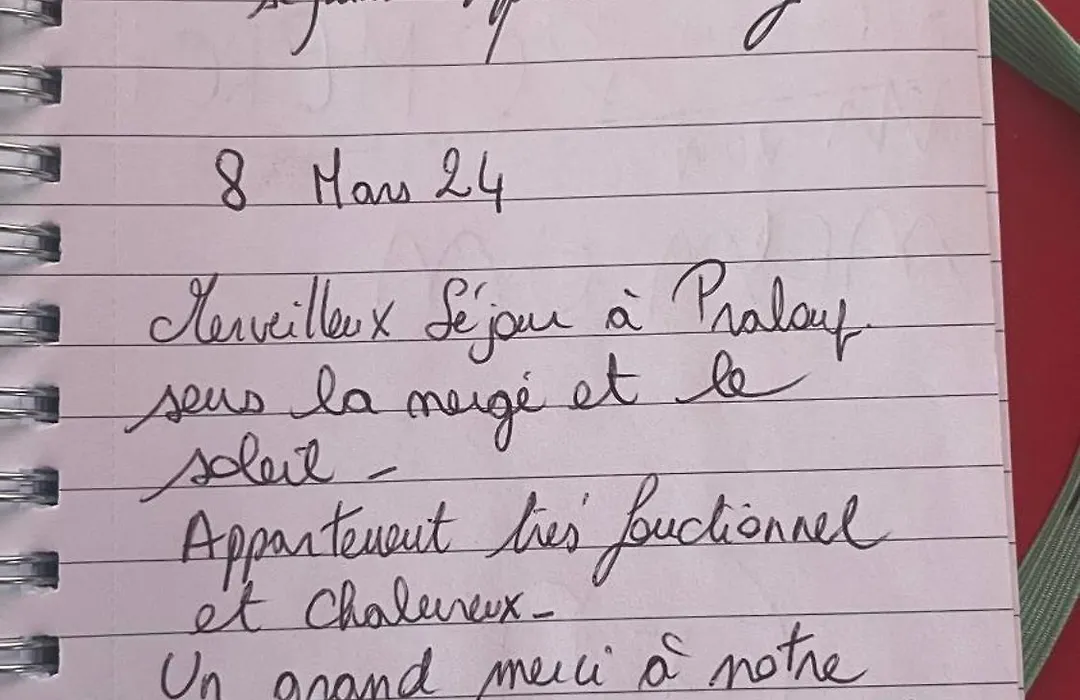 8 Mars 24
Merveilleux Séjour à Praloup
sous la neige et le
soleil -
Appartement très fonctionnel
et chaleureux -
Un grand merci à notre